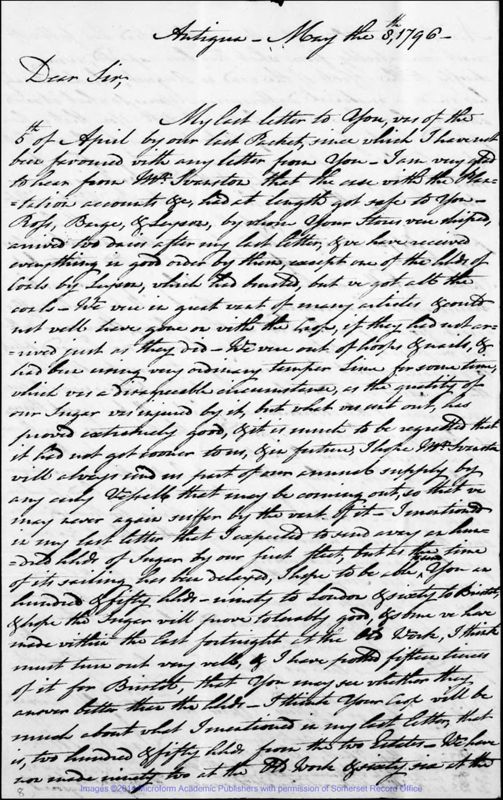 Antigua – May the 8th, 1796 –
Dear Sir,
My last letter to You, was of the
5th of April by our last Packet, since which I have not
been favoured with any letter from You – I am very glad
to hear from Mr. Swanston that the case with the Plan-
=tation accounts &c, had at length got safe to You –
Ross, Barge, & Luyson, by whom Your Stores were shiped,
arrived two daies after my last letter, & we have received
everything in good order by them except one of the hhds of
Coals by Luyson, which had bursted, but we got all the
coals – We were in great want of many articles & could
not well have gone on with the Crop, if they had not arr-
=ived just as they did – We were out of hoops & nails, &
had been using very ordinary temper Lime for some time,
which was a disagreeable circumstance, as the quality of
our Sugar was injured by it, but what was sent out, has
proved extremely good, & it is much to be regretted that
it had not got sooner to us, & in future, I hope Mr. Swanston
will always send us part of our annual supply by
any early Vessells that may be coming out, so that we
may never again suffer by the want of it – I mentioned
in my last letter that I expected to send away an hun-
=dred hhds of Sugar by our first fleet, but as the time
of its sailing has been delayed, I hope to be able, You an
hundred & fifty hhds – ninety to London & sixty to Bristol,
& hope the Sugar will prove tolerably good, & some we have
made within the last fortnight at the Old Work, I think
must turn out very well, & I have potted fifteen tierces
of it for Bristol, that You may see whether they
answer better than the hhds – I think Your Crop will be
much about what I mentioned in my last letter, that
is, two hundred & fifty hhds from the two Estates – We have
now made ninety two at the Old Work & sixty six at the
8
Images © 2014 Microform Academic Publishers with permission of Somerset Record Office